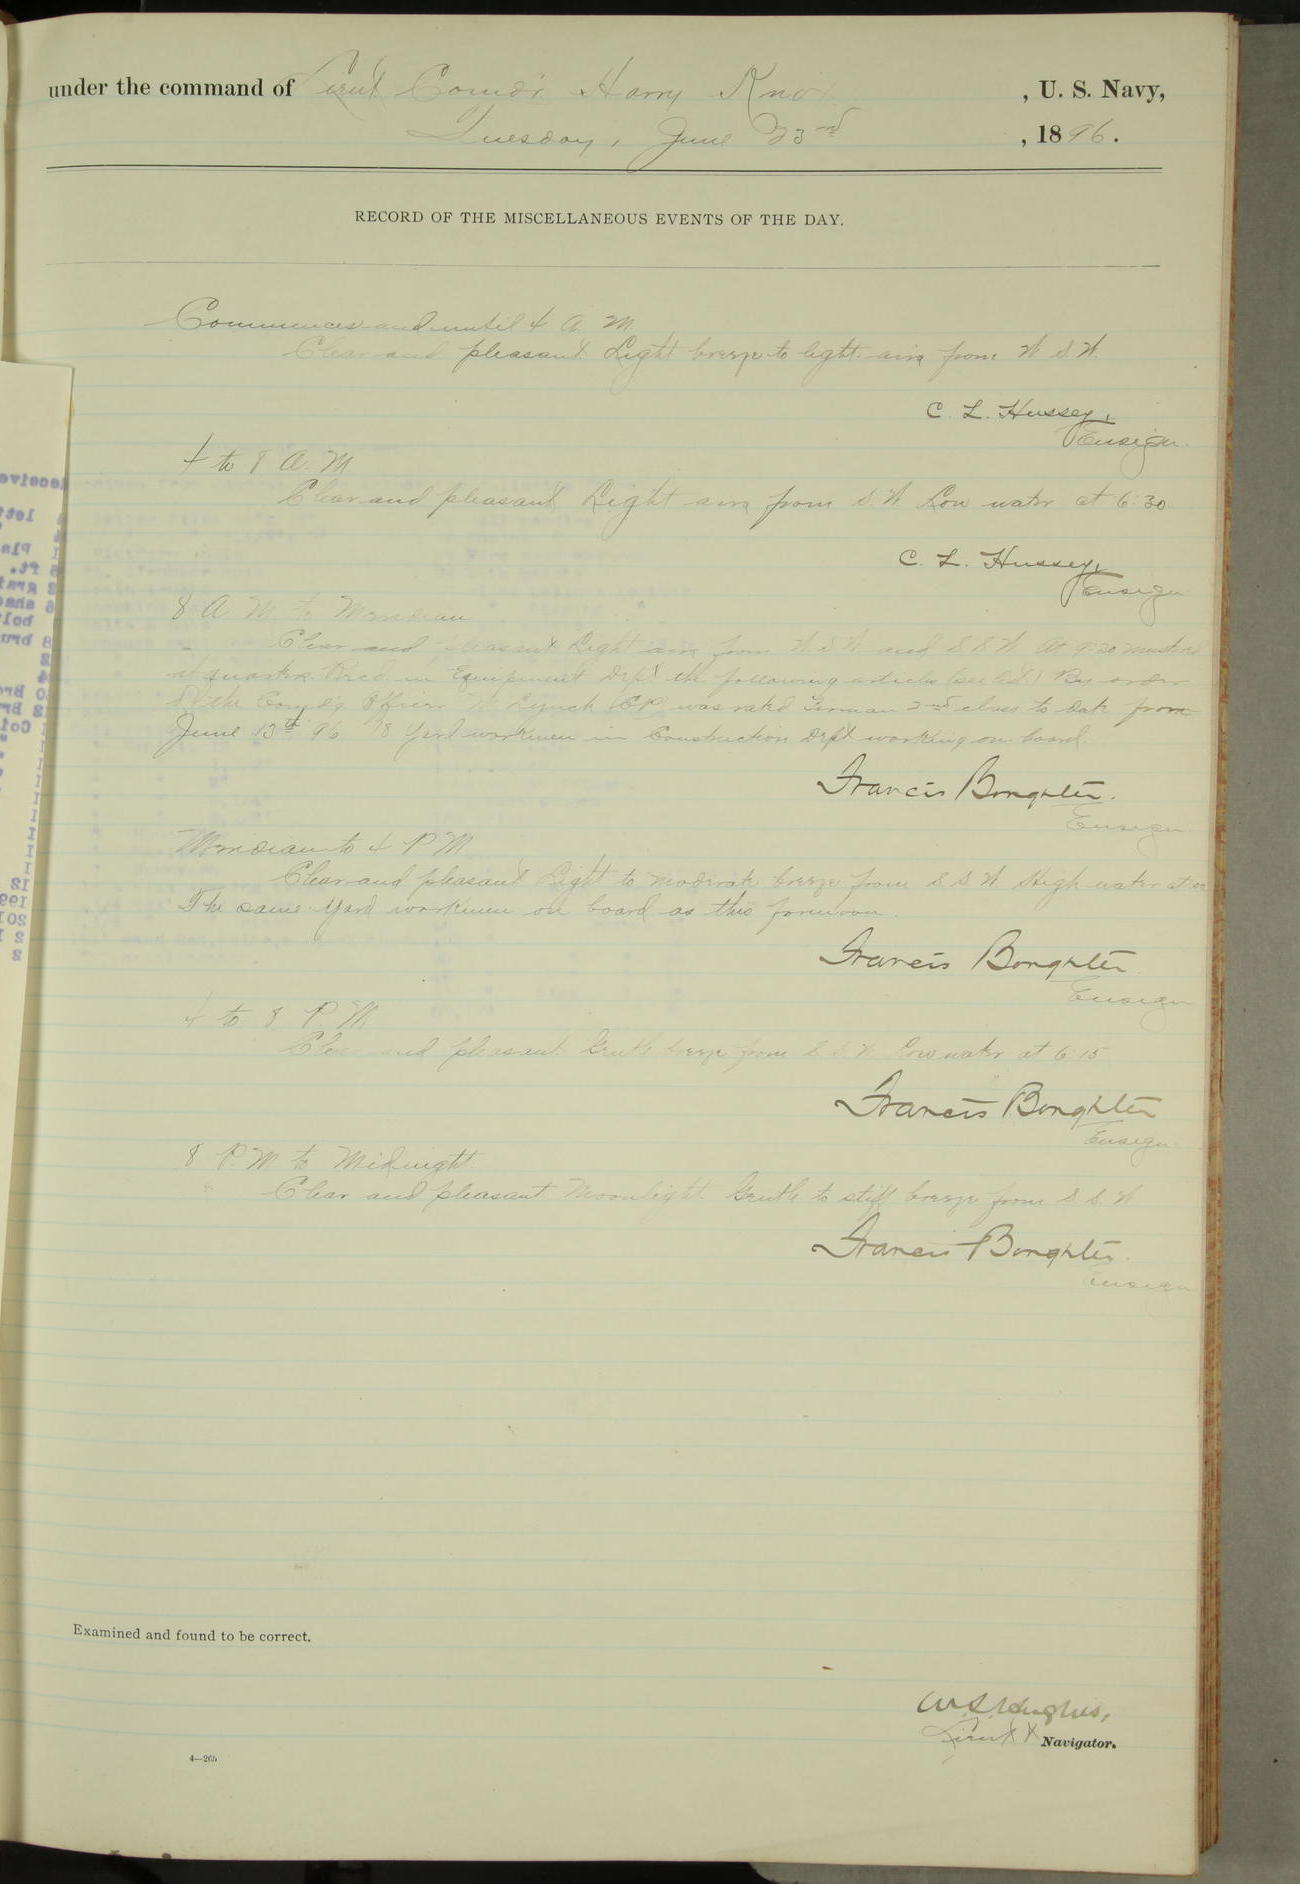 under the command of Lieut Comd'r Harry Knox, U. S. Navy,
Tuesday, June 23rd, 1896.
RECORD OF THE MISCELLANEOUS EVENTS OF THE DAY.
Commences and until 4 A. M.
Clear and pleasant. Light breeze to light airs from W S W.
C. L. Hussey,
Ensign.
4 to 8 A. M.
Clear and pleasant. Light airs from S. W. Low water at 6:30
C. L. Hussey,
Ensign
8 A M. to Meridian
Clear and pleasant. Light airs from W S W and S S W At 9:30 mustered
at quarters. Rec'd in Equipment Dep't the following articles By order
of the Com'd'g Officer Lynch was rated Fireman 2nd class to date from
June 13th 96 18 Yard workmen in Construction Dep't working on board.
Francis Boughter.
Ensign
Meridian to 4 P M
Clear and pleasant. Light to moderate breeze from S S W High water at
The same Yard workmen on board as this forenoon.
Francis Boughter
Ensign
4 to 8 P. M.
Clear and pleasant. Gentle breeze from S S W Low water at 6:15
Francis Boughter
Ensign.
8 P. M. to Midnight.
Clear and pleasant. Moonlight. Gentle to stiff breeze from S S. W
Francis Boughter.
Ensign
Examined and found to be correct.
W. S. Hughes,
Lieut & Navigator.
4—205